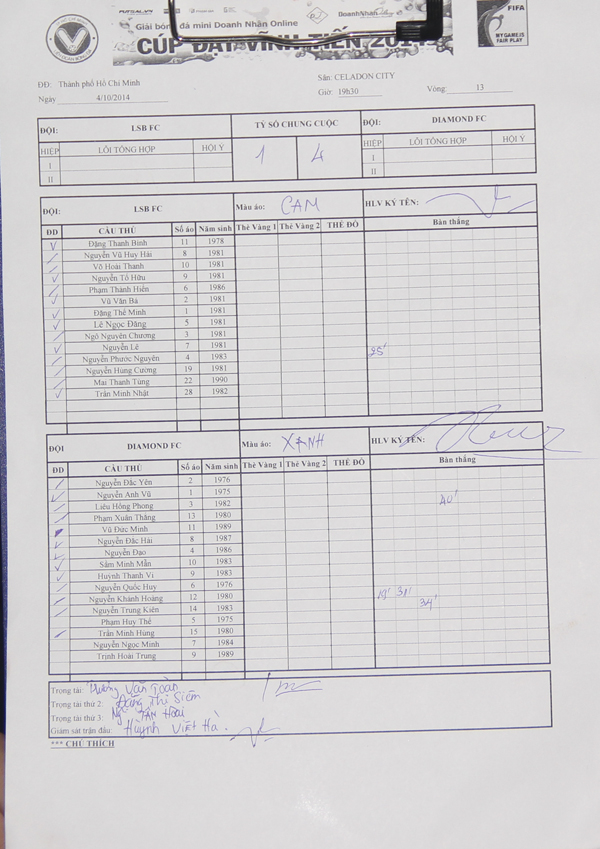 FUTSAL.VN
DoanhNhan
FIFA
Giải bóng đá mini Doanh Nhân Online
CÚP ĐẠT VĨNH TIẾN 2014
MY GAME IS FAIR PLAY
ĐĐ: Thành phố Hồ Chí Minh Sân: CELADON CITY
Ngày 4/10/2014 Giờ: 19h30 Vòng: 13
ĐỘI: LSB FC TỶ SỐ CHUNG CUỘC ĐỘI: DIAMOND FC
HIỆP LỖI TỔNG HỢP HỘI Ý 1 4 HIỆP LỖI TỔNG HỢP HỘI Ý
I I
II II
ĐỘI: LSB FC Màu áo: CAM HLV KÝ TÊN:
ĐD CẦU THỦ Số áo Năm sinh Thẻ Vàng 1 Thẻ Vàng 2 THẺ ĐỎ Bàn thắng
Đặng Thanh Bình 11 1978
Nguyễn Vũ Huy Hải 8 1981
Võ Hoài Thanh 10 1981
Nguyễn Tố Hữu 9 1981
Phạm Thành Hiến 6 1986
Vũ Văn Bá 2 1981
Đặng Thế Minh 1 1981
Lê Ngọc Đăng 5 1981
Ngô Nguyên Chương 3 1981
Nguyễn Lê 7 1981
Nguyễn Phước Nguyên 4 1983 35'
Nguyễn Hùng Cường 19 1981
Mai Thanh Tùng 22 1990
Trần Minh Nhật 28 1982
ĐỘI DIAMOND FC Màu áo: XANH HLV KÝ TÊN:
ĐD CẦU THỦ Số áo Năm sinh Thẻ Vàng 1 Thẻ Vàng 2 THẺ ĐỎ Bàn thắng
Nguyễn Đắc Yên 2 1976
Nguyễn Anh Vũ 1 1975
Liêu Hồng Phong 3 1982 40'
Phạm Xuân Thăng 13 1980
Vũ Đức Minh 11 1989
Nguyễn Đắc Hải 8 1987
Nguyễn Đạo 4 1986
Sầm Minh Mẫn 10 1983
Huỳnh Thanh Vi 9 1983
Nguyễn Quốc Huy 6 1976
Nguyễn Khánh Hoàng 12 1980 19' 31'
Nguyễn Trung Kiên 14 1983 34'
Phạm Huy Thế 5 1975
Trần Minh Hùng 15 1980
Nguyễn Ngọc Minh 7 1984
Trịnh Hoài Trung 9 1989
Trọng tài: Dương Văn Toàn
Trọng tài thứ 2: Đặng Thị Siêm
Trọng tài thứ 3: Ng Tấn Hoài
Giám sát trận đấu: Huỳnh Việt Hà.
*** CHÚ THÍCH